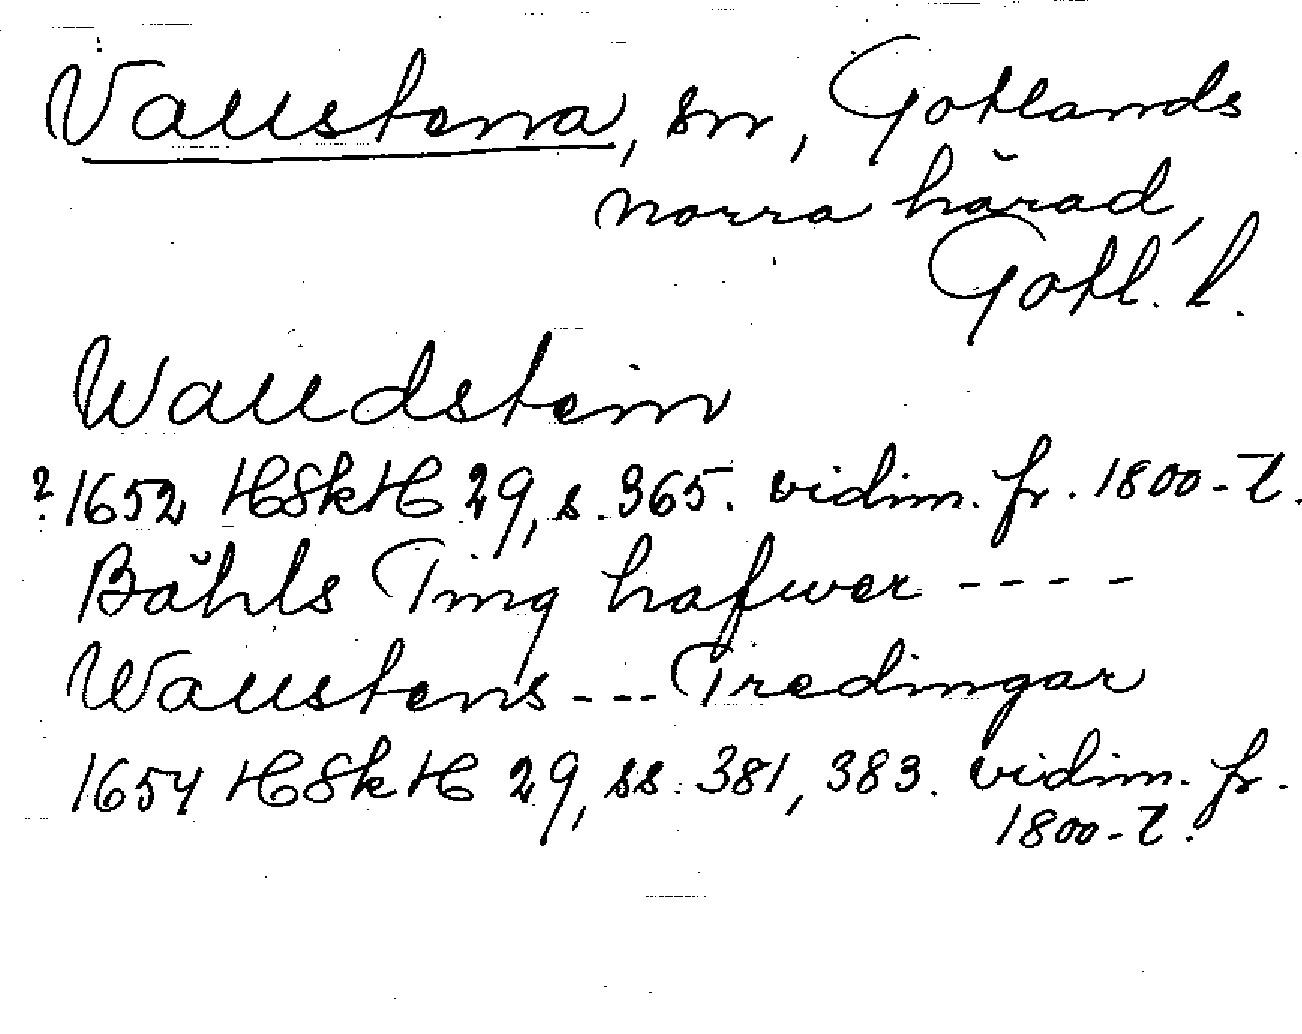 Vallstena, sn, Gotlands
norra härad,
Gotl. l.
Walldstein
? 1652 HSkH 29, s. 365. vidim. fr. 1800-t.
Bähls Ting hafwer ----
Wallstens --- Tredingar
1654 HSkH 29, ss. 381, 383. vidim. fr.
1800-t.